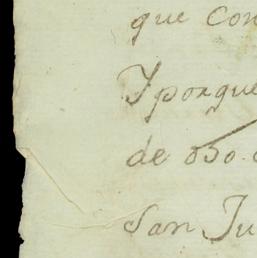 que con
Y porque
de 030.
San Ju